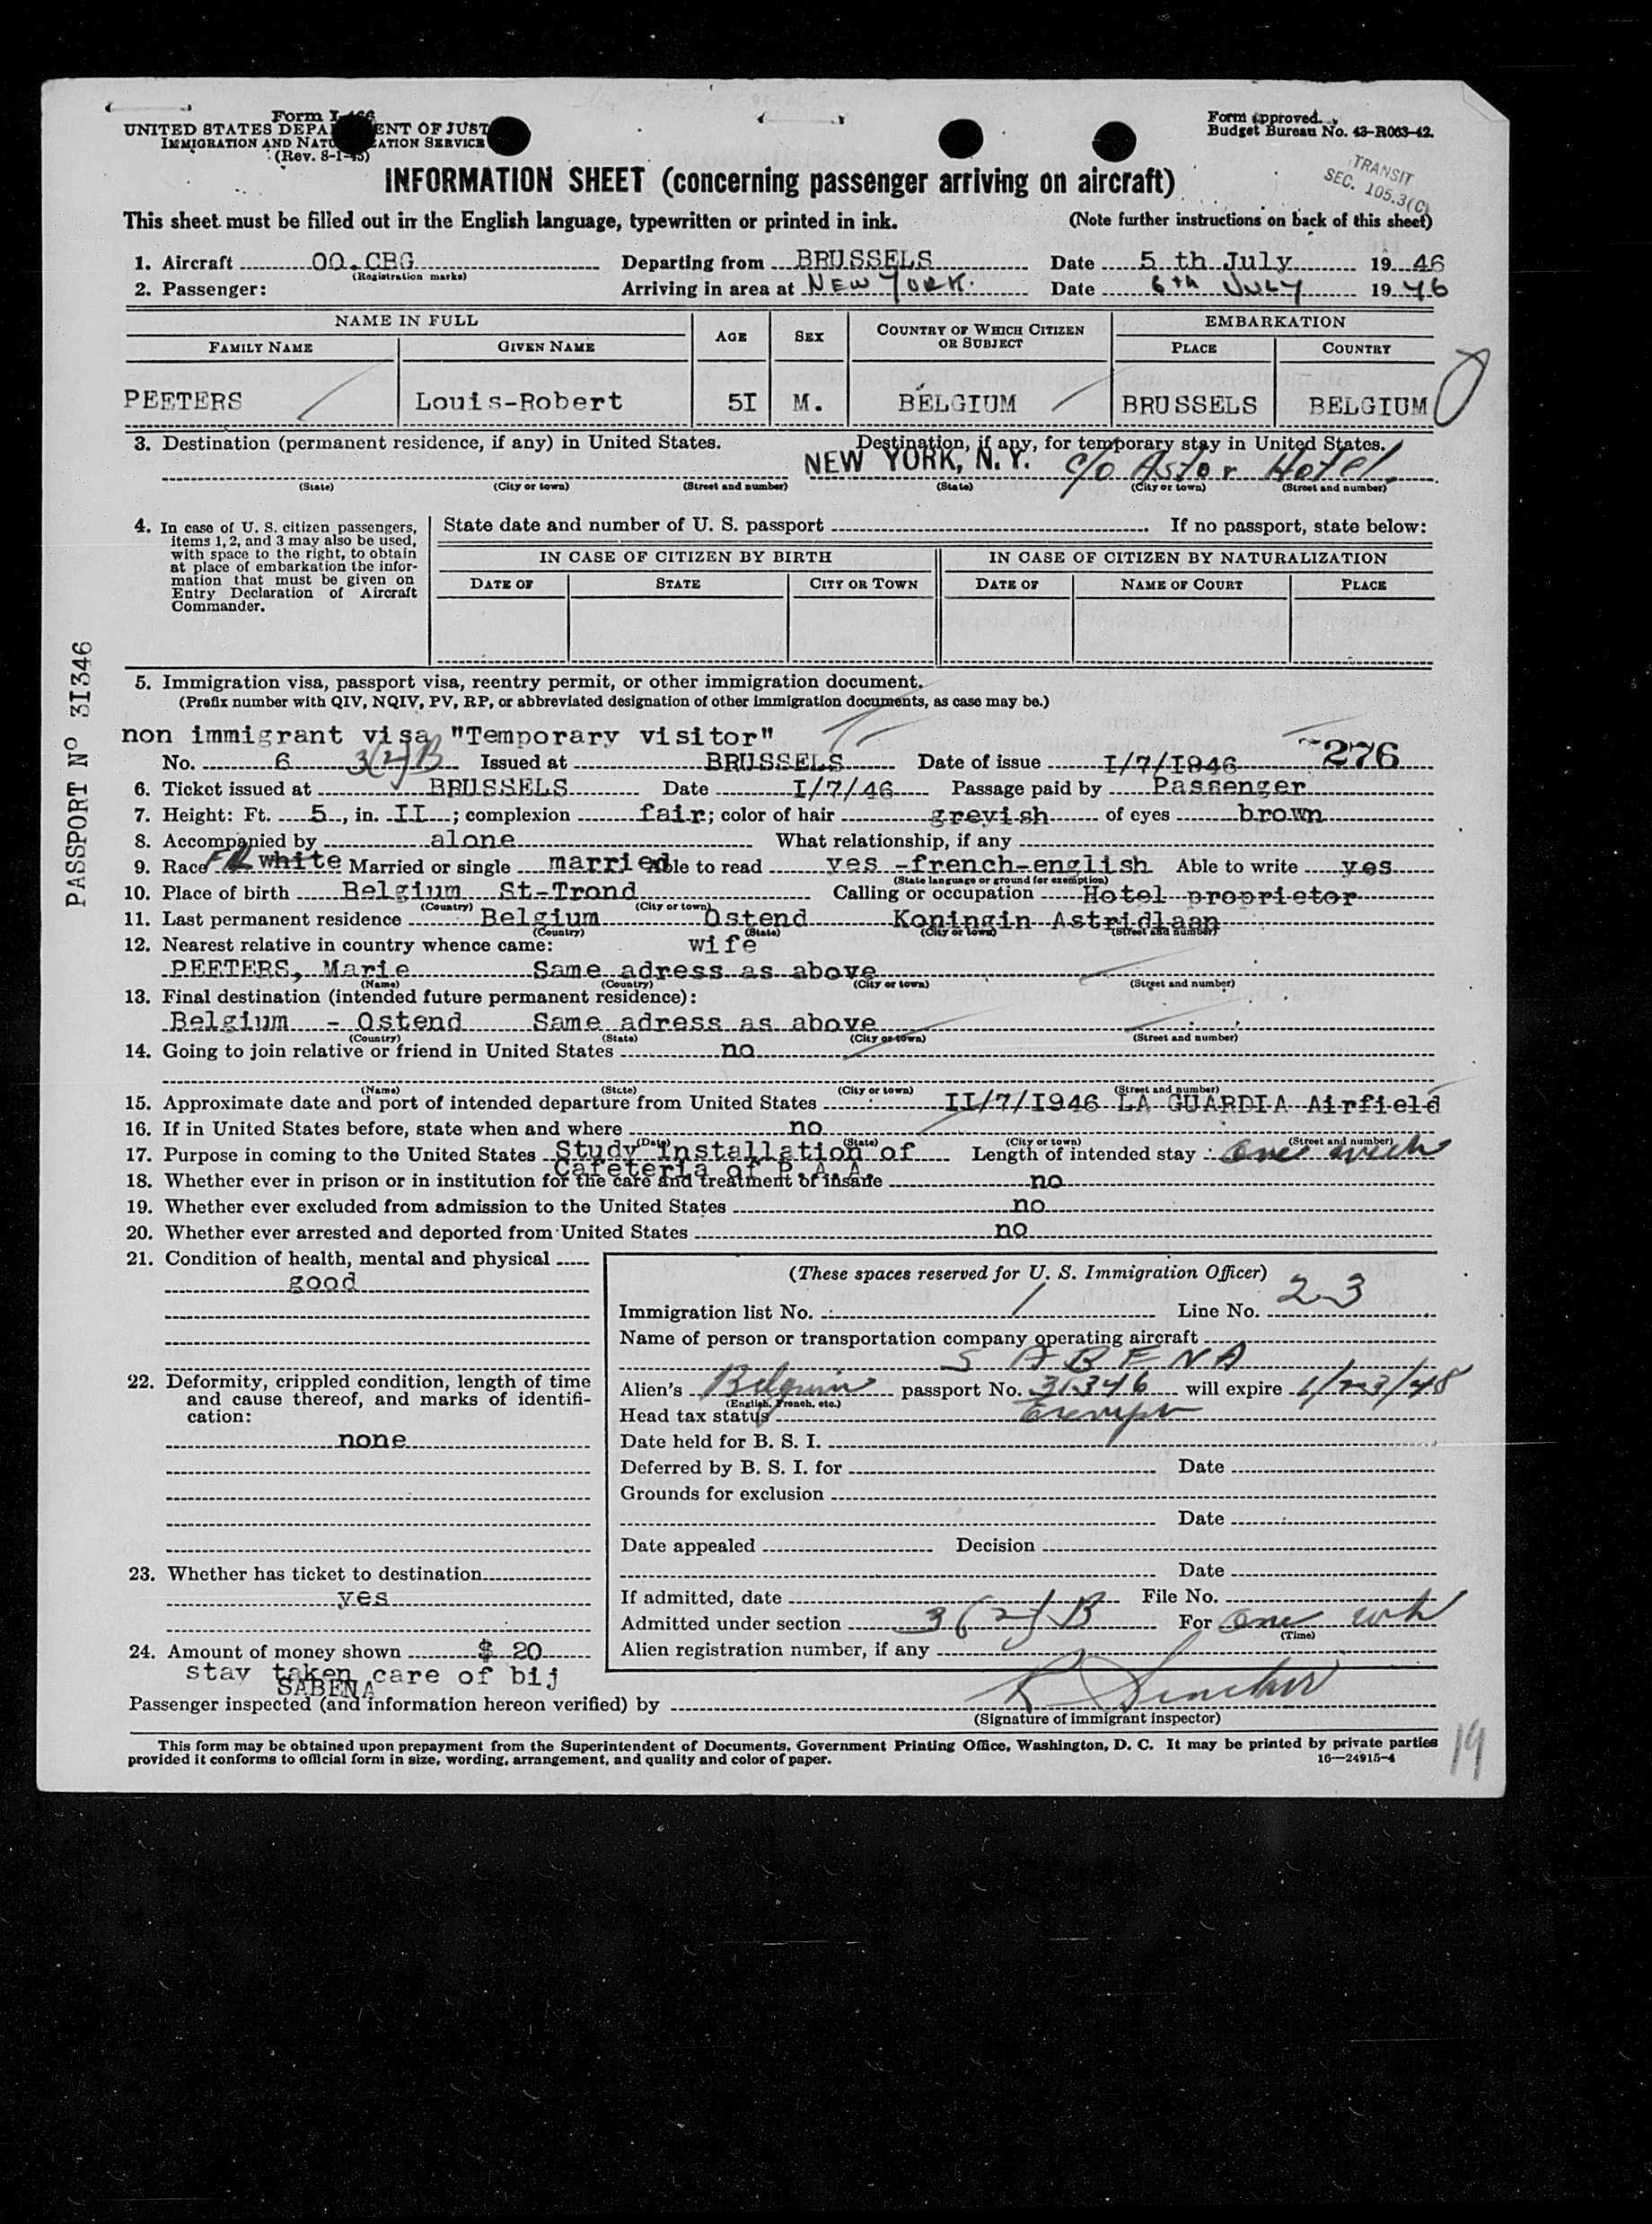 Form I-466
UNITED STATES DEPA ENT OF JUST
IMMIGRATION AND NATU ATION SERVICE
(Rev. 8-1-45)
Form approved.
Budget Bureau No. 43-R063-42.
TRANSIT
SEC. 105.3(C)
INFORMATION SHEET (concerning passenger arriving on aircraft)
This sheet must be filled out in the English language, typewritten or printed in ink. (Note further instructions on back of this sheet)
1. Aircraft OO.CBG Departing from BRUSSELS Date 5 th July 1946
(Registration marks)
2. Passenger: Arriving in area at NEW YORK. Date 6th JULY 1946
NAME IN FULL AGE SEX COUNTRY OF WHICH CITIZEN OR SUBJECT EMBARKATION
FAMILY NAME GIVEN NAME PLACE COUNTRY
PEETERS Louis-Robert 5I M. BELGIUM BRUSSELS BELGIUM
3. Destination (permanent residence, if any) in United States. Destination, if any, for temporary stay in United States.
NEW YORK, N.Y. c/o Astor Hotel
(State) (City or town) (Street and number) (State) (City or town) (Street and number)
4. In case of U. S. citizen passengers, items 1, 2, and 3 may also be used, with space to the right, to obtain at place of embarkation the information that must be given on Entry Declaration of Aircraft Commander.
State date and number of U. S. passport If no passport, state below:
IN CASE OF CITIZEN BY BIRTH IN CASE OF CITIZEN BY NATURALIZATION
DATE OF STATE CITY OR TOWN DATE OF NAME OF COURT PLACE
PASSPORT Nº 3I346
5. Immigration visa, passport visa, reentry permit, or other immigration document.
(Prefix number with QIV, NQIV, PV, RP, or abbreviated designation of other immigration documents, as case may be.)
non immigrant visa "Temporary visitor"
No. 6 3(2)B Issued at BRUSSELS Date of issue I/7/I946 276
6. Ticket issued at BRUSSELS Date I/7/46 Passage paid by Passenger
7. Height: Ft. 5, in. II; complexion fair; color of hair greyish of eyes brown
8. Accompanied by alone What relationship, if any
9. Race white Married or single married Able to read yes -french-english Able to write yes
(State language or ground for exemption)
10. Place of birth Belgium St-Trond Calling or occupation Hotel proprietor
(Country) (City or town)
11. Last permanent residence Belgium Ostend Koningin Astridlaan
(Country) (State) (City or town) (Street and number)
12. Nearest relative in country whence came: wife
PEETERS, Marie Same adress as above
(Name) (Country) (City or town) (Street and number)
13. Final destination (intended future permanent residence):
Belgium - Ostend Same adress as above
(Country) (State) (City or town) (Street and number)
14. Going to join relative or friend in United States no
(Name) (State) (City or town) (Street and number)
15. Approximate date and port of intended departure from United States II/7/I946 LA GUARDIA Airfield
16. If in United States before, state when and where no
(Date) (State) (City or town) (Street and number)
17. Purpose in coming to the United States Study installation of Length of intended stay one week
Cafeteria of P.A.A.
18. Whether ever in prison or in institution for the care and treatment of insane no
19. Whether ever excluded from admission to the United States no
20. Whether ever arrested and deported from United States no
21. Condition of health, mental and physical
good
22. Deformity, crippled condition, length of time and cause thereof, and marks of identification:
none
23. Whether has ticket to destination
yes
24. Amount of money shown $ 20
stay taken care of bij
SABENA
(These spaces reserved for U. S. Immigration Officer)
Immigration list No. 1 Line No. 23
Name of person or transportation company operating aircraft
SABENA
Alien's Belgium passport No. 31346 will expire 1/23/48
(English, French, etc.)
Head tax status Exempt
Date held for B. S. I.
Deferred by B. S. I. for Date
Grounds for exclusion
Date
Date appealed Decision
Date
If admitted, date File No.
Admitted under section 3(2)B For one wk
(Time)
Alien registration number, if any
Passenger inspected (and information hereon verified) by R Sinclair
(Signature of immigrant inspector)
This form may be obtained upon prepayment from the Superintendent of Documents, Government Printing Office, Washington, D. C. It may be printed by private parties
provided it conforms to official form in size, wording, arrangement, and quality and color of paper. 16—24915-4
19